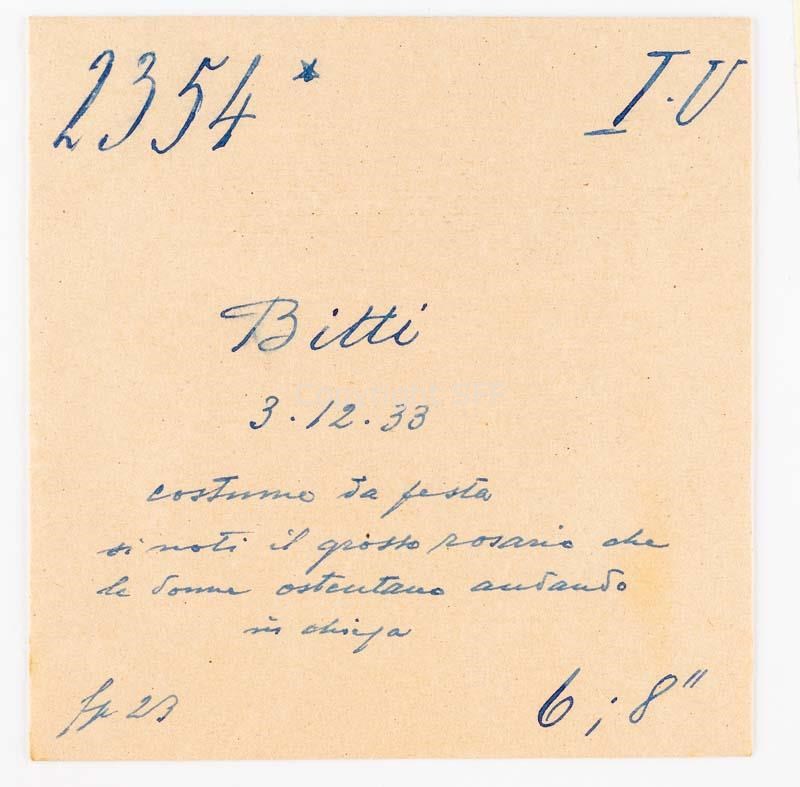 2354* I.V
Bitti
3.12.33
costume da festa
si noti il grosso rosario che
le donne ostentano andando
in chiesa
6; 8"